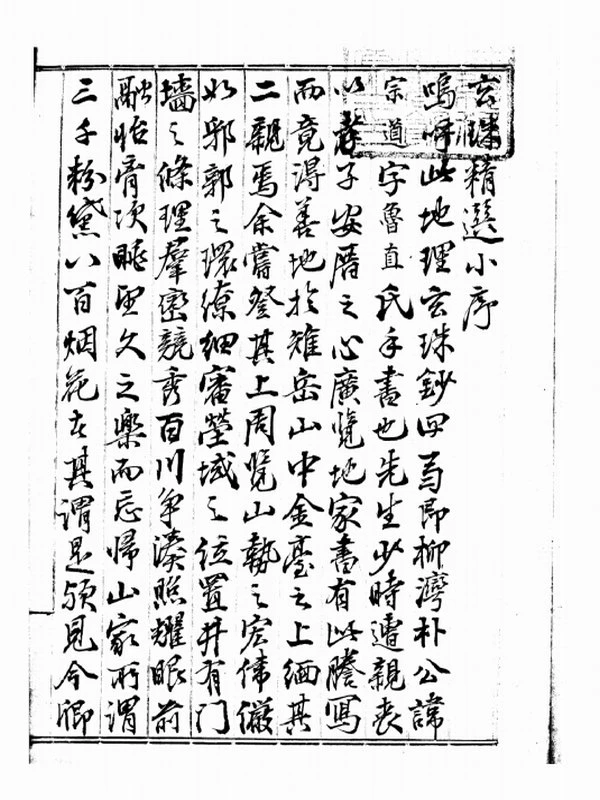 玄珠精選小序
嗚呼此地理玄珠鈔四即柳灣朴公諱
宗道字魯直氏手書也先生少時遭親喪
以孝子安厝之心廣覽地家書有此謄寫
而竟得善地於雉岳山中金臺之上緬其
二親焉余嘗登其上周覽山勢之宏偉儼
如郛郭之環繚細審塋域之位置井有門
墻之條理羣巒競秀百川爭湊照耀眼前
融怡胷次眺望久之樂而忘歸山家所謂
三千粉黛八百烟花者其謂是歟見今